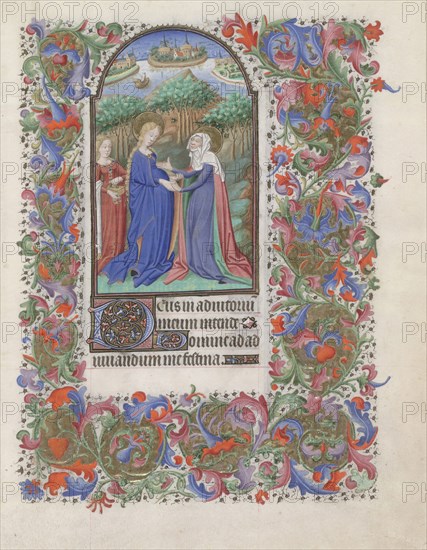 Deus in adiutorium
meum intende
Domine ad ad
iuuandum me festina.
PHOTO12